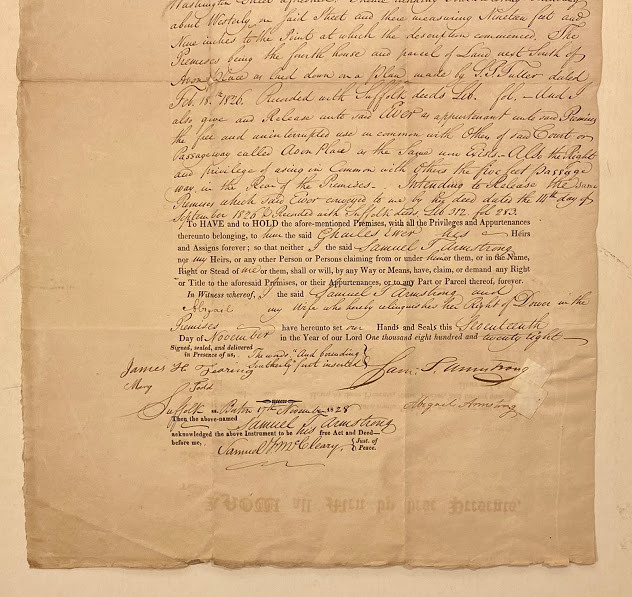 Washington Street
about Westerly on said Street and there measuring Nineteen feet and
Nine inches to the Point at which the description commenced. The
Premises being the fourth house and parcel of Land next South of
Avon Place as laid down on a Plan made by S. P. Fuller dated
Feb. 18.th 1826. Recorded with Suffolk deeds Lib. fol. — And I
also give and Release unto said Ewer as appurtenant unto said Premises
the free and uninterrupted use in common with Others of said Court or
Passageway called Avon Place as the Same now Exists - Also the Right
and privilege of using in Common with others the five feet Passage
way in the Rear of the Premises. - Intending to Release the same
Premises which said Ewer conveyed to me by his deed dated the 14th day of
September 1826 & Recorded with Suffolk deeds, Lib 312. fol 283.
To HAVE and to HOLD the afore-mentioned Premises, with all the Privileges and Appurtenances
thereunto belonging, to him the said Charles Ewer his Heirs
and Assigns forever; so that neither I the said Samuel T. Armstrong
nor my Heirs, or any other Person or Persons claiming from or under me or them, or in the Name,
Right or Stead of me or them, shall or will, by any Way or Means, have, claim, or demand any Right
or Title to the aforesaid Premises, or their Appurtenances, or to any Part or Parcel thereof, forever.
In Witness whereof, I the said Samuel T Armstrong and
Abigail my Wife who hereby relinquishes her Right of Dower in the
Premises have hereunto set our Hands and Seals this Seventeenth
Day of November in the Year of our Lord One thousand eight hundred and twenty eight —
Signed, sealed, and delivered
in Presence of us, The words "And bounding
Southerly" first inserted
James H
Mary J Todd
Sam: T. Armstrong
Abigail Armstrong
Suffolk ss Boston 17th November 1828
Then the above-named Samuel T Armstrong
acknowledged the above Instrument to be his free Act and Deed—
before me, Samuel F McCleary. Just. of
Peace.